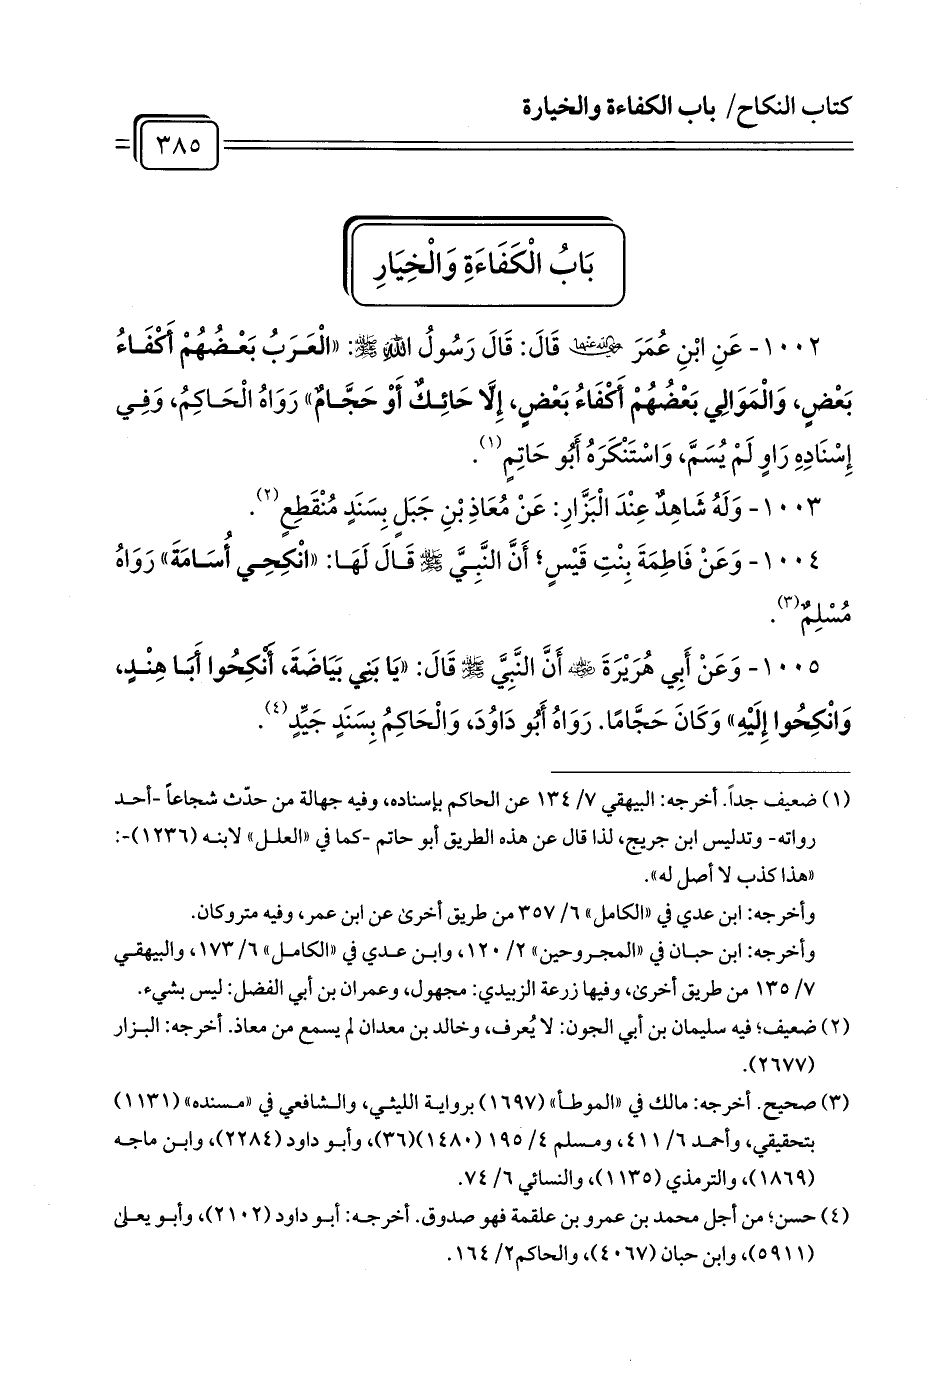 كتاب النكاح/ باب الكفاءة والخيارة
٣٨٥
بَابُ الْكَفَاءَةِ وَالْخِيَارِ
١٠٠٢- عَنِ ابْنِ عُمَرَ رضي الله عنهما قَالَ: قَالَ رَسُولُ اللهِ ﷺ: «الْعَرَبُ بَعْضُهُمْ أَكْفَاءُ
بَعْضٍ، وَالْمَوَالِي بَعْضُهُمْ أَكْفَاءُ بَعْضٍ، إِلَّا حَائِكٌ أَوْ حَجَّامٌ» رَوَاهُ الْحَاكِمُ، وَفِي
إِسْنَادِهِ رَاوٍ لَمْ يُسَمَّ، وَاسْتَنْكَرَهُ أَبُو حَاتِمٍ(١).
١٠٠٣- وَلَهُ شَاهِدٌ عِنْدَ الْبَزَّارِ: عَنْ مُعَاذِ بْنِ جَبَلٍ بِسَنَدٍ مُنْقَطِعٍ(٢).
١٠٠٤- وَعَنْ فَاطِمَةَ بِنْتِ قَيْسٍ؛ أَنَّ النَّبِيَّ ﷺ قَالَ لَهَا: «انْكِحِي أُسَامَةَ» رَوَاهُ
مُسْلِمٌ(٣).
١٠٠٥- وَعَنْ أَبِي هُرَيْرَةَ رضي الله عنه أَنَّ النَّبِيَّ ﷺ قَالَ: «يَا بَنِي بَيَاضَةَ، أَنْكِحُوا أَبَا هِنْدٍ،
وَانْكِحُوا إِلَيْهِ» وَكَانَ حَجَّامًا. رَوَاهُ أَبُو دَاوُدَ، وَالْحَاكِمُ بِسَنَدٍ جَيِّدٍ(٤).
(١) ضعيف جداً. أخرجه: البيهقي ٧/ ١٣٤ عن الحاكم بإسناده، وفيه جهالة من حدّث شجاعاً -أحد
رواته- وتدليس ابن جريج، لذا قال عن هذه الطريق أبو حاتم -كما في «العلل» لابنه (١٢٣٦)-:
«هذا كذب لا أصل له».
وأخرجه: ابن عدي في «الكامل» ٦/ ٣٥٧ من طريق أخرى عن ابن عمر، وفيه متروكان.
وأخرجه: ابن حبان في «المجروحين» ٢/ ١٢٠، وابن عدي في «الكامل» ٦/ ١٧٣، والبيهقي
٧/ ١٣٥ من طريق أخرى، وفيها زرعة الزبيدي: مجهول، وعمران بن أبي الفضل: ليس بشيء.
(٢) ضعيف؛ فيه سليمان بن أبي الجون: لا يُعرف، وخالد بن معدان لم يسمع من معاذ. أخرجه: البزار
(٢٦٧٧).
(٣) صحيح. أخرجه: مالك في «الموطأ» (١٦٩٧) برواية الليثي، والشافعي في «مسنده» (١١٣١)
بتحقيقي، وأحمد ٦/ ٤١١، ومسلم ٤/ ١٩٥ (١٤٨٠)(٣٦)، وأبو داود (٢٢٨٤)، وابن ماجه
(١٨٦٩)، والترمذي (١١٣٥)، والنسائي ٦/ ٧٤.
(٤) حسن؛ من أجل محمد بن عمرو بن علقمة فهو صدوق. أخرجه: أبو داود (٢١٠٢)، وأبو يعلى
(٥٩١١)، وابن حبان (٤٠٦٧)، والحاكم٢/ ١٦٤.